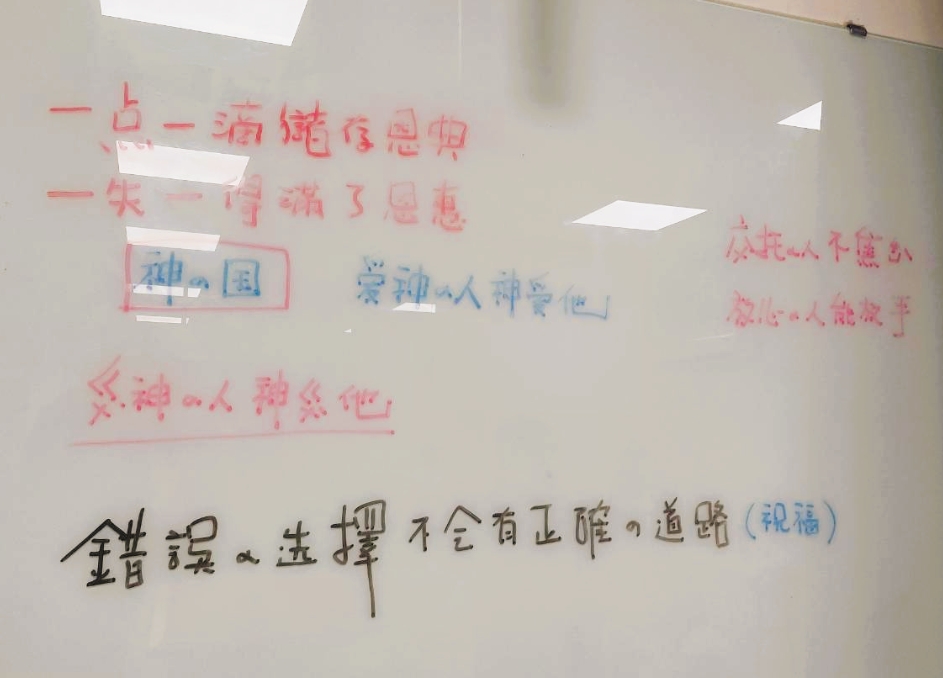 一点一滴儲存恩典
一失一得滿了恩惠
神の国
爱神の人神爱他
交托の人不焦虑
放心の人能放手
神の人神他
錯誤の选擇不会有正確の道路(祝福)